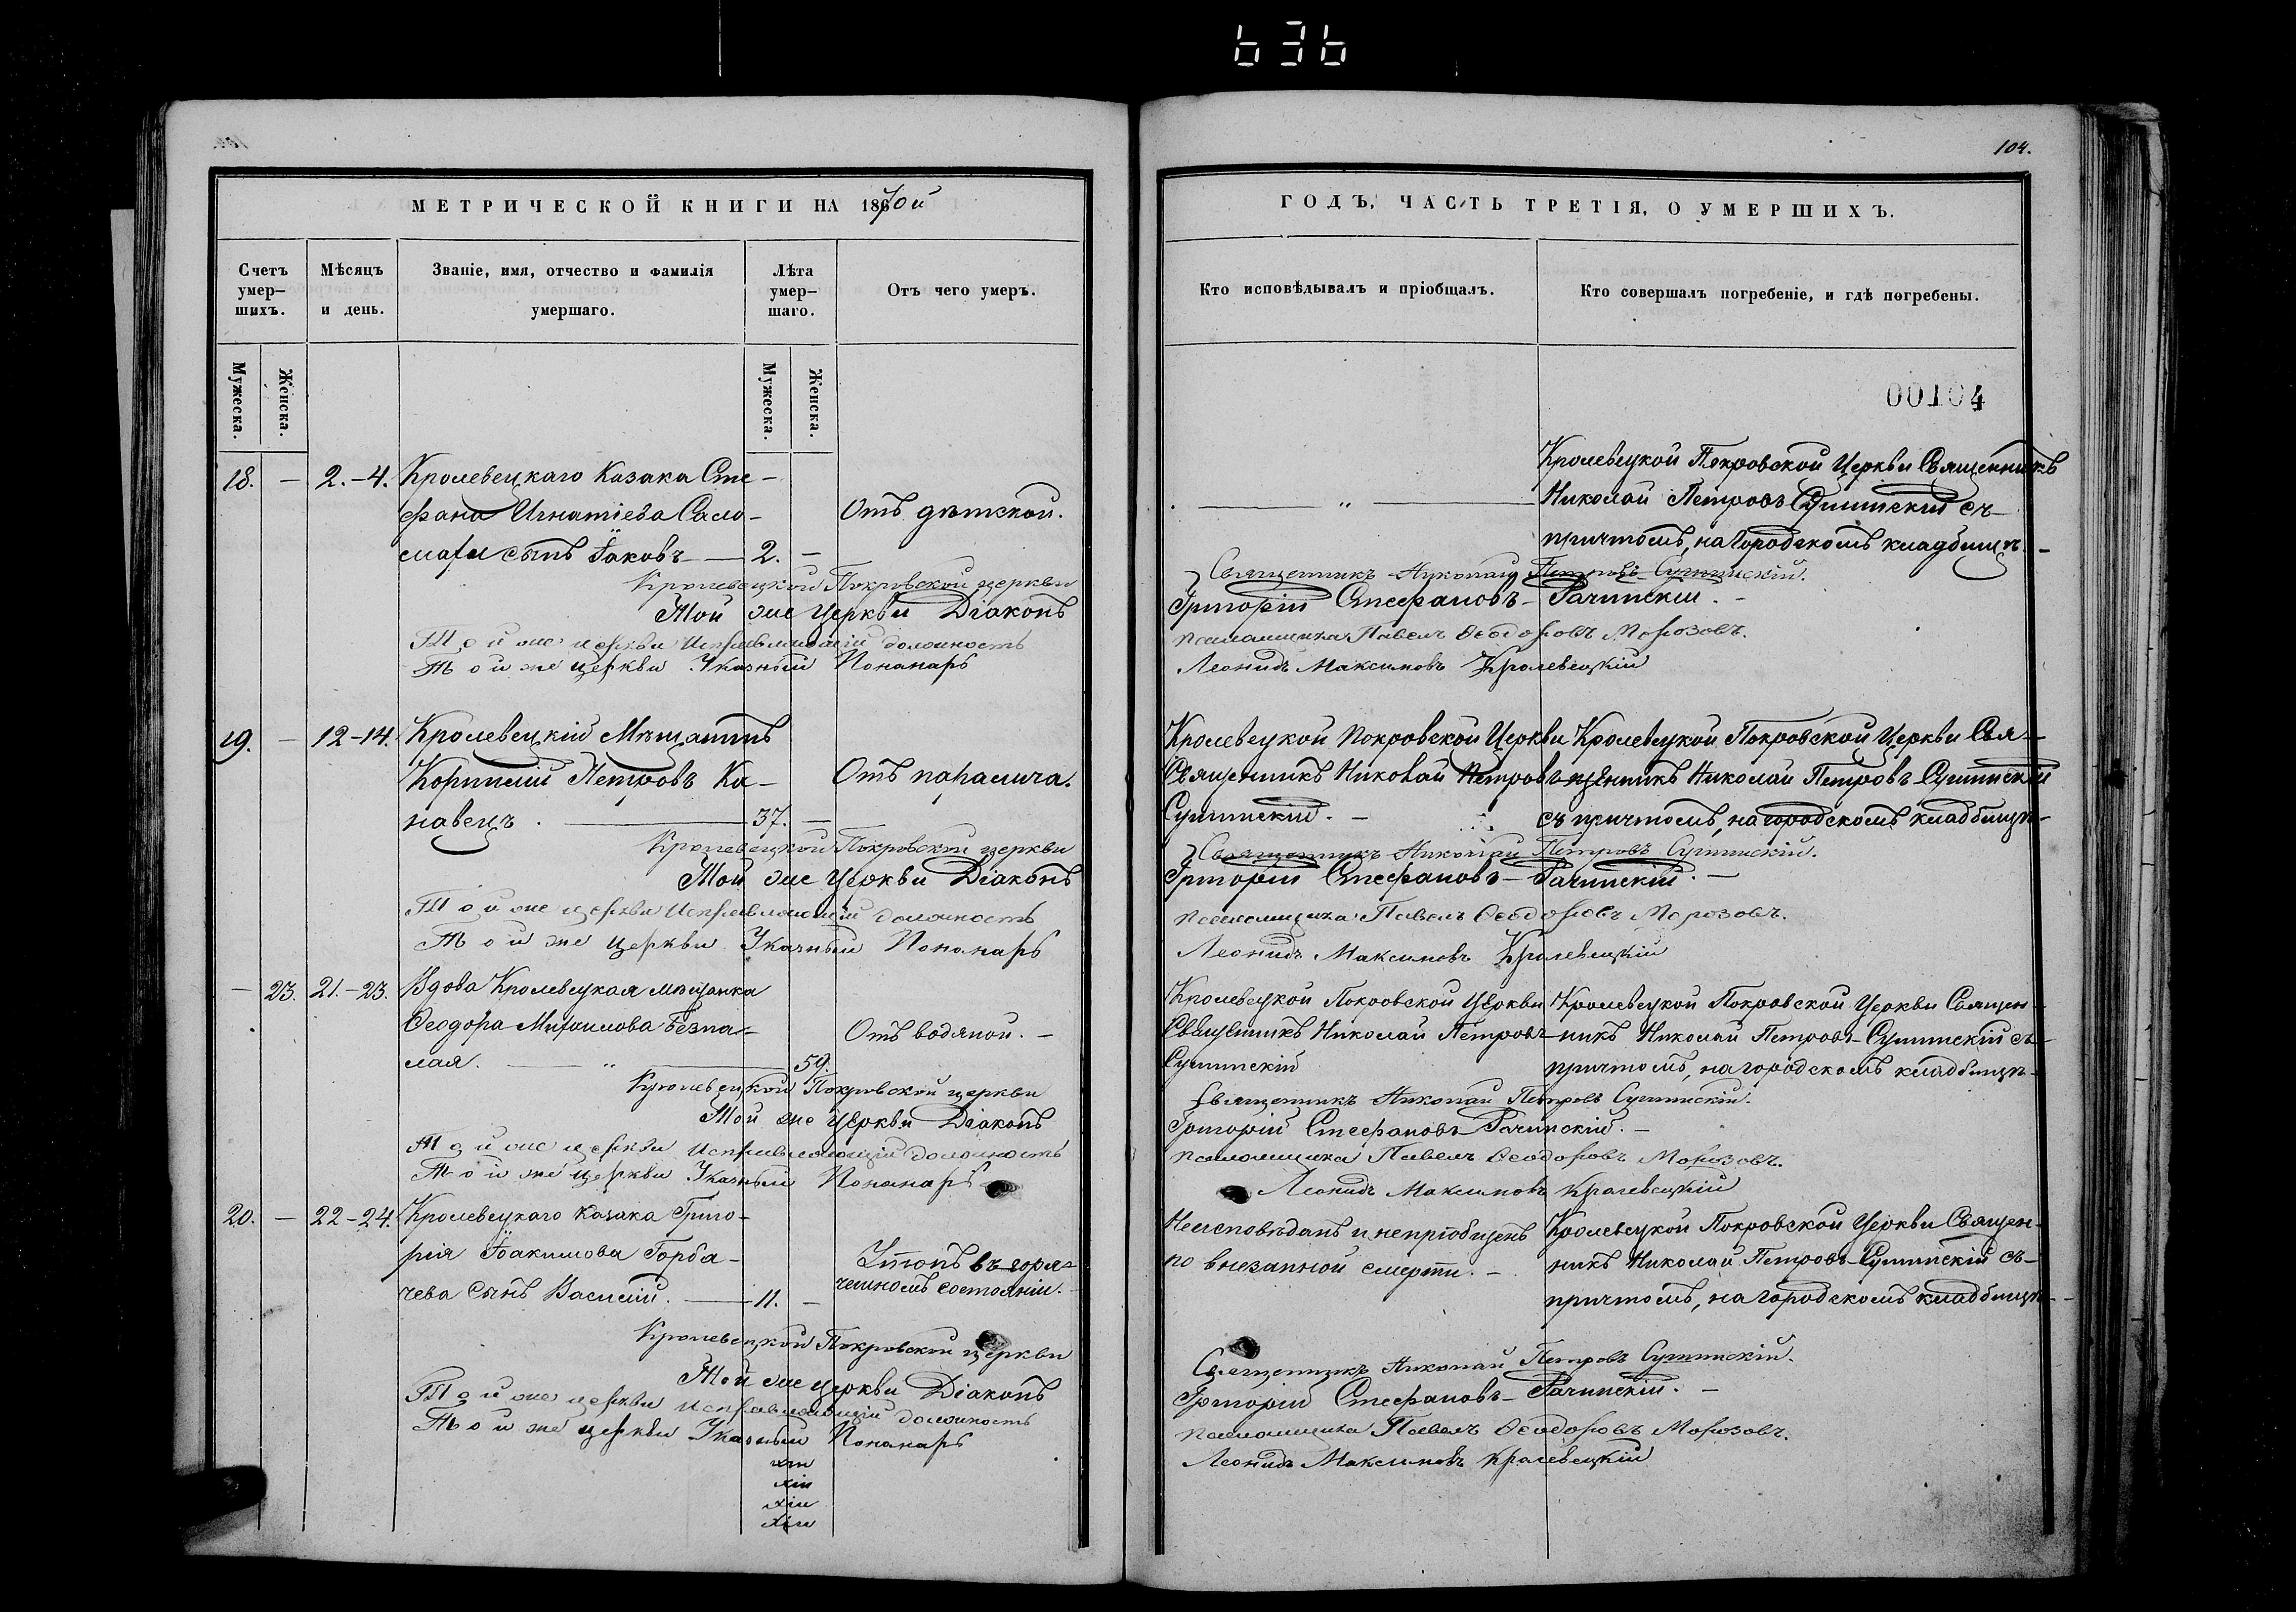 636
104.
МЕТРИЧЕСКОЙ КНИГИ НА 1867ой
ГОДЪ, ЧАСТЬ ТРЕТІЯ, О УМЕРШИХЪ.
Счетъ умер-
шихъ.
Мѣсяцъ
и день.
Званіе, имя, отчество и фамилія
умершаго.
Лѣта
умер-
шаго.
Отъ чего умеръ.
Кто исповѣдывалъ и пріобщалъ.
Кто совершалъ погребеніе, и гдѣ погребены.
Мужеска.
Женска.
Мужеска.
Женска.
00104
18. — 2.-4. Кролевецкаго Казака Сте-
фана Игнатіева Сало-
сынъ Іаковъ — 2. —
Отъ дѣтской.
Кролевецкой Покровской Церкви Священникъ
Николай Петровъ съ
причтомъ, на городскомъ кладбищѣ.
Кролевецкой Покровской церкви Священникъ Николай Петровъ
Той же Церкви Діаконъ Григорій Стефановъ Рачинскій.
Той же церкви Исправляющій должность псаломщика Павелъ Ѳеодоровъ Морозовъ.
Той же церкви Указный Пономарь Леонидъ Максимовъ Кролевецкій
19. — 12-14. Кролевецкій Мѣщанинъ
Корнилій Петровъ Ка-
навецъ. — 37. —
Отъ паралича.
Кролевецкой Покровской Церкви
Священникъ Николай Петровъ
Кролевецкой Покровской Церкви Свя-
щенникъ Николай Петровъ
съ причтомъ, на городскомъ кладбищѣ
Кролевецкой Покровской церкви Священникъ Николай Петровъ
Той же Церкви Діаконъ Григорій Стефановъ Рачинскій.
Той же церкви Исправляющій должность псаломщика Павелъ Ѳеодоровъ Морозовъ.
Той же церкви Указный Пономарь Леонидъ Максимовъ Кролевецкій
— 23. 21.-23. Вдова Кролевецкая мѣщанка
Ѳеодора Михаилова Безпа-
лая. — 59.
Отъ водяной.
Кролевецкой Покровской Церкви
Священникъ Николай Петровъ
Кролевецкой Покровской Церкви Священ-
никъ Николай Петровъ съ
причтомъ, на городскомъ кладбищѣ
Кролевецкой Покровской церкви Священникъ Николай Петровъ
Той же Церкви Діаконъ Григорій Стефановъ Рачинскій.
Той же церкви Исправляющій должность псаломщика Павелъ Ѳеодоровъ Морозовъ.
Той же церкви Указный Пономарь Леонидъ Максимовъ Кролевецкій
20. — 22-24. Кролевецкаго казака Григо-
рія Іоакимова Горба-
чева Сынъ Василій. — 11. —
въ горя-
состояніи.
Неисповѣданъ и непріобщенъ
по внезапной смерти.
Кролевецкой Покровской Церкви Священ-
никъ Николай Петровъ съ
причтомъ, на городскомъ кладбищѣ
Кролевецкой Покровской церкви Священникъ Николай Петровъ
Той же церкви Діаконъ Григорій Стефановъ Рачинскій.
Той же церкви Исправляющій должность псаломщика Павелъ Ѳеодоровъ Морозовъ.
Той же церкви Указный Пономарь Леонидъ Максимовъ Кролевецкій